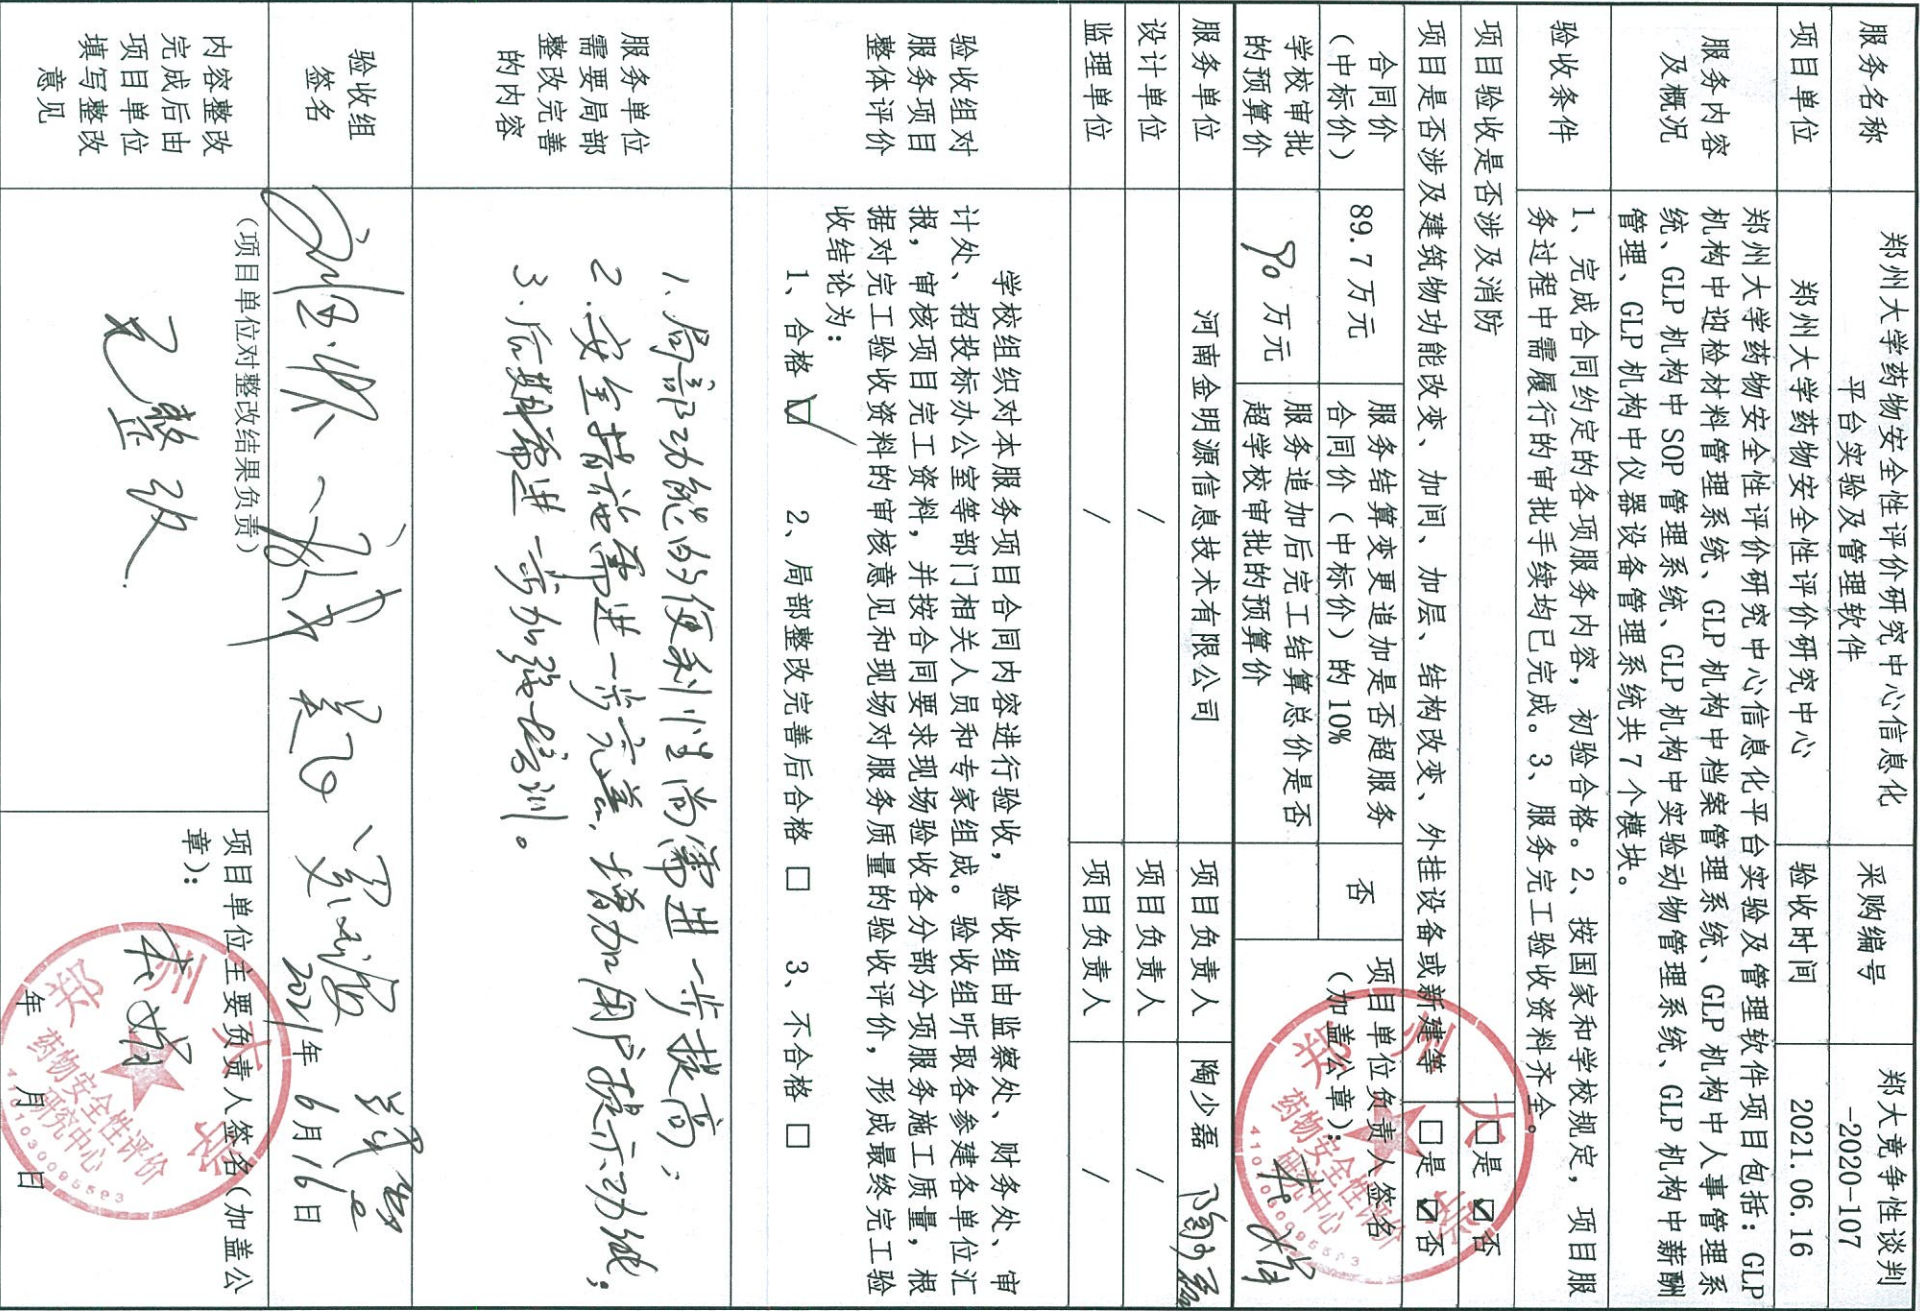 服务名称
郑州大学药物安全性评价研究中心信息化
平台实验及管理软件
采购编号
郑大竞争性谈判
-2020-107
项目单位
郑州大学药物安全性评价研究中心
验收时间
2021.06.16
服务内容
及概况
郑州大学药物安全性评价研究中心信息化平台实验及管理软件项目包括：GLP
机构中迎检材料管理系统、GLP 机构中档案管理系统、GLP 机构中人事管理系
统、GLP 机构中 SOP 管理系统、GLP 机构中实验动物管理系统、GLP 机构中薪酬
管理、GLP 机构中仪器设备管理系统共 7 个模块。
验收条件
1、完成合同约定的各项服务内容，初验合格。2、按国家和学校规定，项目服
务过程中需履行的审批手续均已完成。3、服务完工验收资料齐全。
项目验收是否涉及消防
□是 ☑否
项目是否涉及建筑物功能改变、加间、加层、结构改变、外挂设备或新建等
□是 ☑否
合同价
（中标价）
89.7 万元
服务结算变更追加是否超服务
合同价（中标价）的 10%
否
项目单位负责人签名
（加盖公章）：
学校审批
的预算价
90 万元
服务追加后完工结算总价是否
超学校审批的预算价
服务单位
河南金明源信息技术有限公司
项目负责人
陶少磊
陶少磊
设计单位
/
项目负责人
/
监理单位
/
项目负责人
/
验收组对
服务项目
整体评价
学校组织对本服务项目合同内容进行验收，验收组由监察处、财务处、审
计处、招投标办公室等部门相关人员和专家组成。验收组听取各参建各单位汇
报，审核项目完工资料，并按合同要求现场验收各分部分项服务施工质量，根
据对完工验收资料的审核意见和现场对服务质量的验收评价，形成最终完工验
收结论为：
1、合格 ☑ 2、局部整改完善后合格 □ 3、不合格 □
服务单位
需要局部
整改完善
的内容
1.局部功能的便利性尚需进一步提高；
2.安全措施需进一步完善，增加用户提示功能；
3.后期需进一步加强培训。
验收组
签名
2021年 6月16日
内容整改
完成后由
项目单位
填写整改
意见
（项目单位对整改结果负责）
已整改.
项目单位主要负责人签名（加盖公
章）：
年 月 日
郑州大学
药物安全性评价
研究中心
4101030095583
郑州大学
药物安全性评价
研究中心
4101030095583